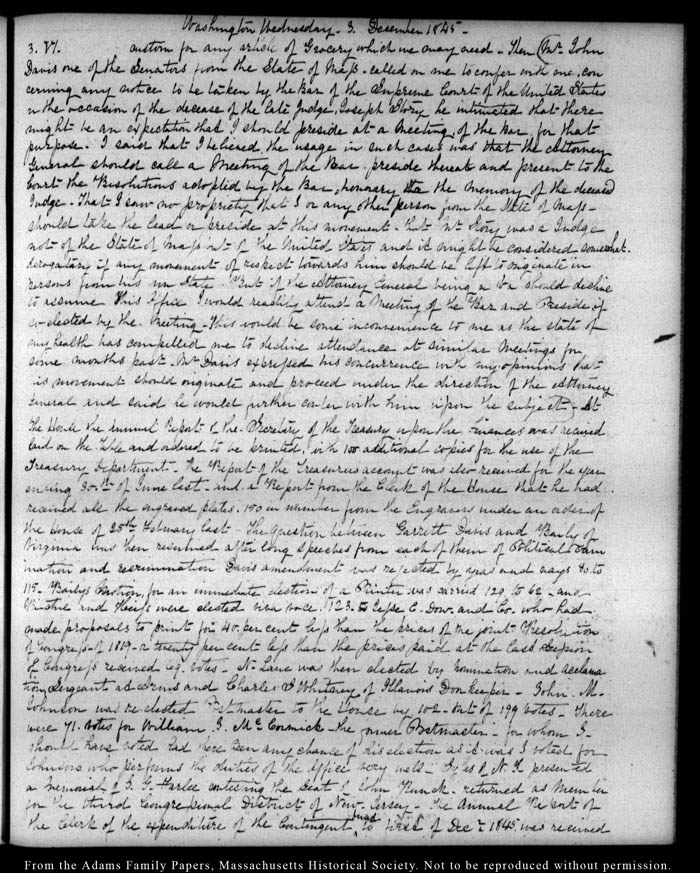 Washington Wednesday - 3. December 1845 -
3. VI. custom for any article of Grocery which we may need - Then Mr John
Davis one of the Senators from the State of Mass. called on me to confer with me, con
cerning any notice to be taken by the Bar of the Supreme Court of the United States
on the occasion of the decease of the late Judge, Joseph Story, he intimated that there
might be an expectation that I should preside at a meeting of the Bar, for that
purpose. I said that I believed, the usage in such cases was that the Attorney
General should call a Meeting of the Bar, preside thereat and present to the
Court the Resolutions adopted by the Bar, honorary to the memory of the deceased
Judge - That I saw no propriety that I or any other person from the State of Mass -
should take the lead or preside at this movement - that Mr Story was a Judge
not of the State of Mass but of the United States and it might be considered somewhat
derogatory if any movement of respect towards him should be left to originate in
persons from his own State. But if the Attorney General being should decline
to assume this Office I would readily attend a Meeting of the Bar and Preside, if
so elected by the Meeting - This would be some inconvenience to me as the state of
my health has compelled me to decline attendance at similar Meetings for
some months past. Mr Davis expressed his concurrence with my opinions that
this movement should originate and proceed under the direction of the Attorney
General and said he would further confer with him upon the subject - At
the House the annual Report of the Secretary of the Treasury upon the Finances was received
laid on the table and ordered to be printed, with additional copies for the use of the
Treasury Department - The Report of the Treasurers account was also received for the year
ending 30th of June last - and a Report from the Clerk of the House that he had
received all the engraved plates, 150 in number from the Engravers under an order of
the House of 25th February last - The Question between Garrett Davis and Bayly of
Virginia was then resumed after long speeches from each of them of Political
and recrimination Davis amendment was rejected by yeas and nays 80 to
115 - Bayly's Motion, for an immediate election of a Printer was carried 129 to 62 - and
Ritchie and Heiss were elected viva voce, 123 to Jesse E. Dow and Co. who had
made proposals to print for 40 per cent less than the prices of the joint Resolution
of Congress of 1819 - or twenty per cent less than the prices paid at the last Session
of Congress received 69 votes - N. Lane was then elected by nomination and acclama
tion, Sergeant at Arms and Charles S Whitney of Illinois Doorkeeper - John M.
Johnson was re elected Postmaster to the House by 102 - out of 199 votes - There
were 71 votes for William J. McCormick - the former Postmaster - for whom I
should have voted had there been any chance of his election as it was I voted for
Johnson who performs the duties of the Office very well - of N. J. presented
a Memorial of J. G. Farlee contesting the Seat of John Runck, returned as Member
for the third Congressional District of New Jersey - The Annual Report of
the Clerk of the expenditure of the Contingent fund to first of Decr 1845 was received
From the Adams Family Papers, Massachusetts Historical Society. Not to be reproduced without permission.